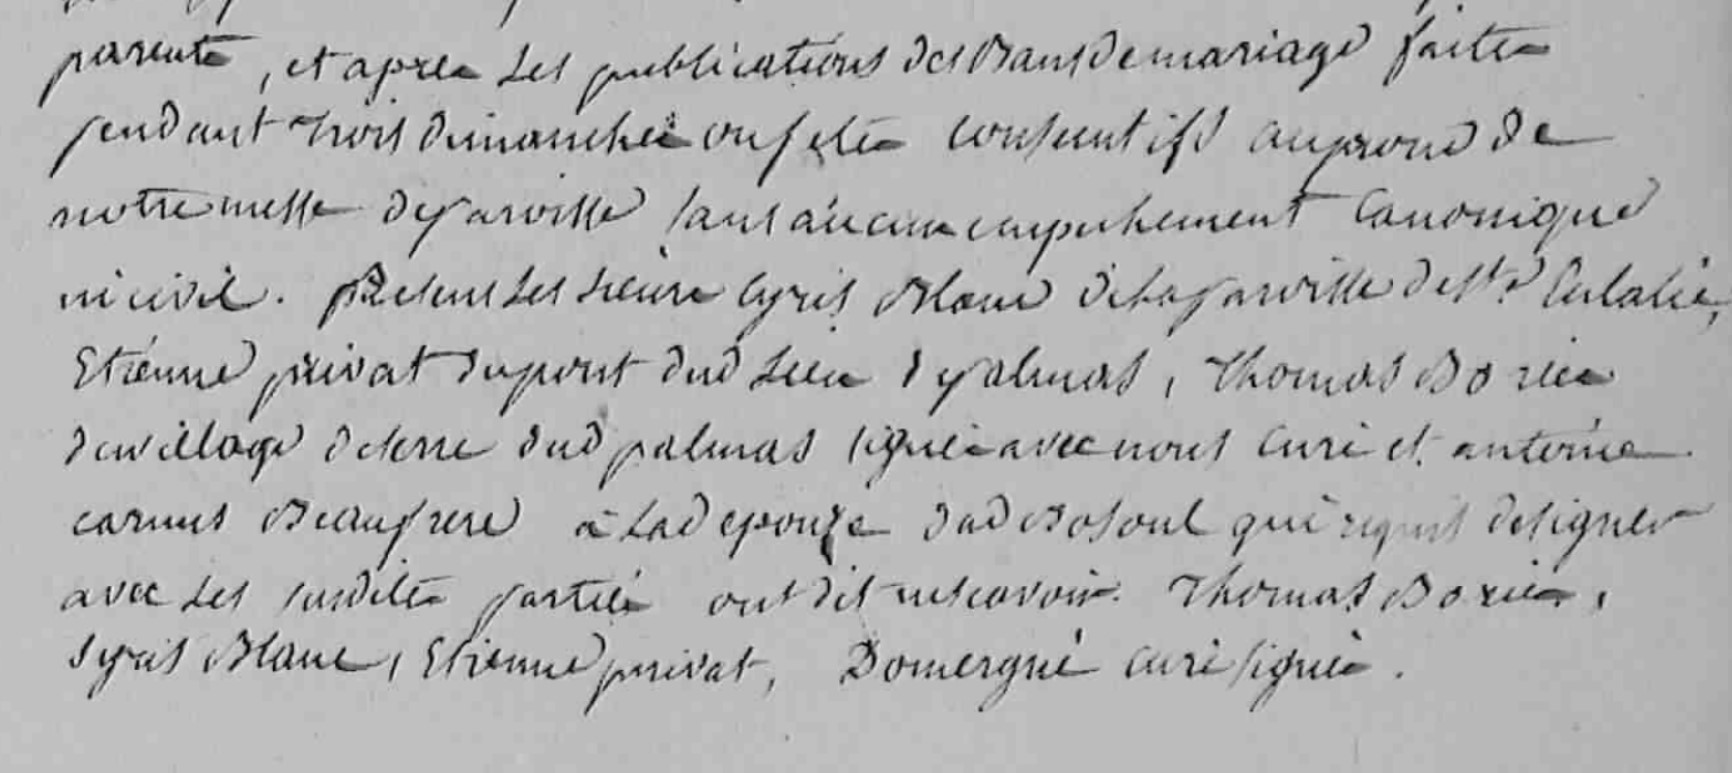 parents, et apres les publications des Bans de mariage faites
pendant trois dimanches ou fetes consecutifs au prone de
notre messe de paroisse sans aucun empechement canonique
ni civil. presens les sieurs Cyris Blanc de la paroisse de Ste Eulalie,
Etienne privat du pont dud lieu de palmas, Thomas Bories
du village de dud palmas signés avec nous curé et antoine
carnus Beaufrere à lad epouse dad qui requis de signer
avec les susdites parties ont dit ne scavoir. Thomas Bories,
Syris Blanc, Etienne privat, Domergue curé signés.